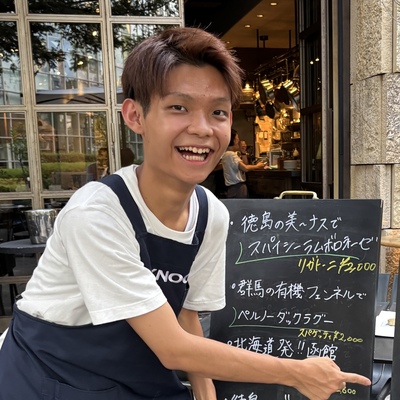 KNOC
・徳島の美〜ナスで
スパイシーラムボロネーゼ
リガトーニ ¥2,000
・群馬の有機フェンネルで
ペルノーダックラグー
スパゲッティ ¥2,000
・北海道発!! 函館